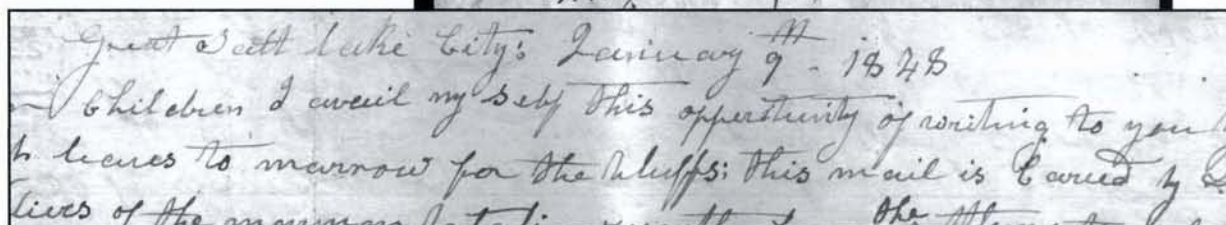 Great Salt Lake City: January 9th - 1848
Children I avail my self this opportunity of writing to you
leaves to marrow for the bluffs: this mail is caried by
tives of the mormon batalion the